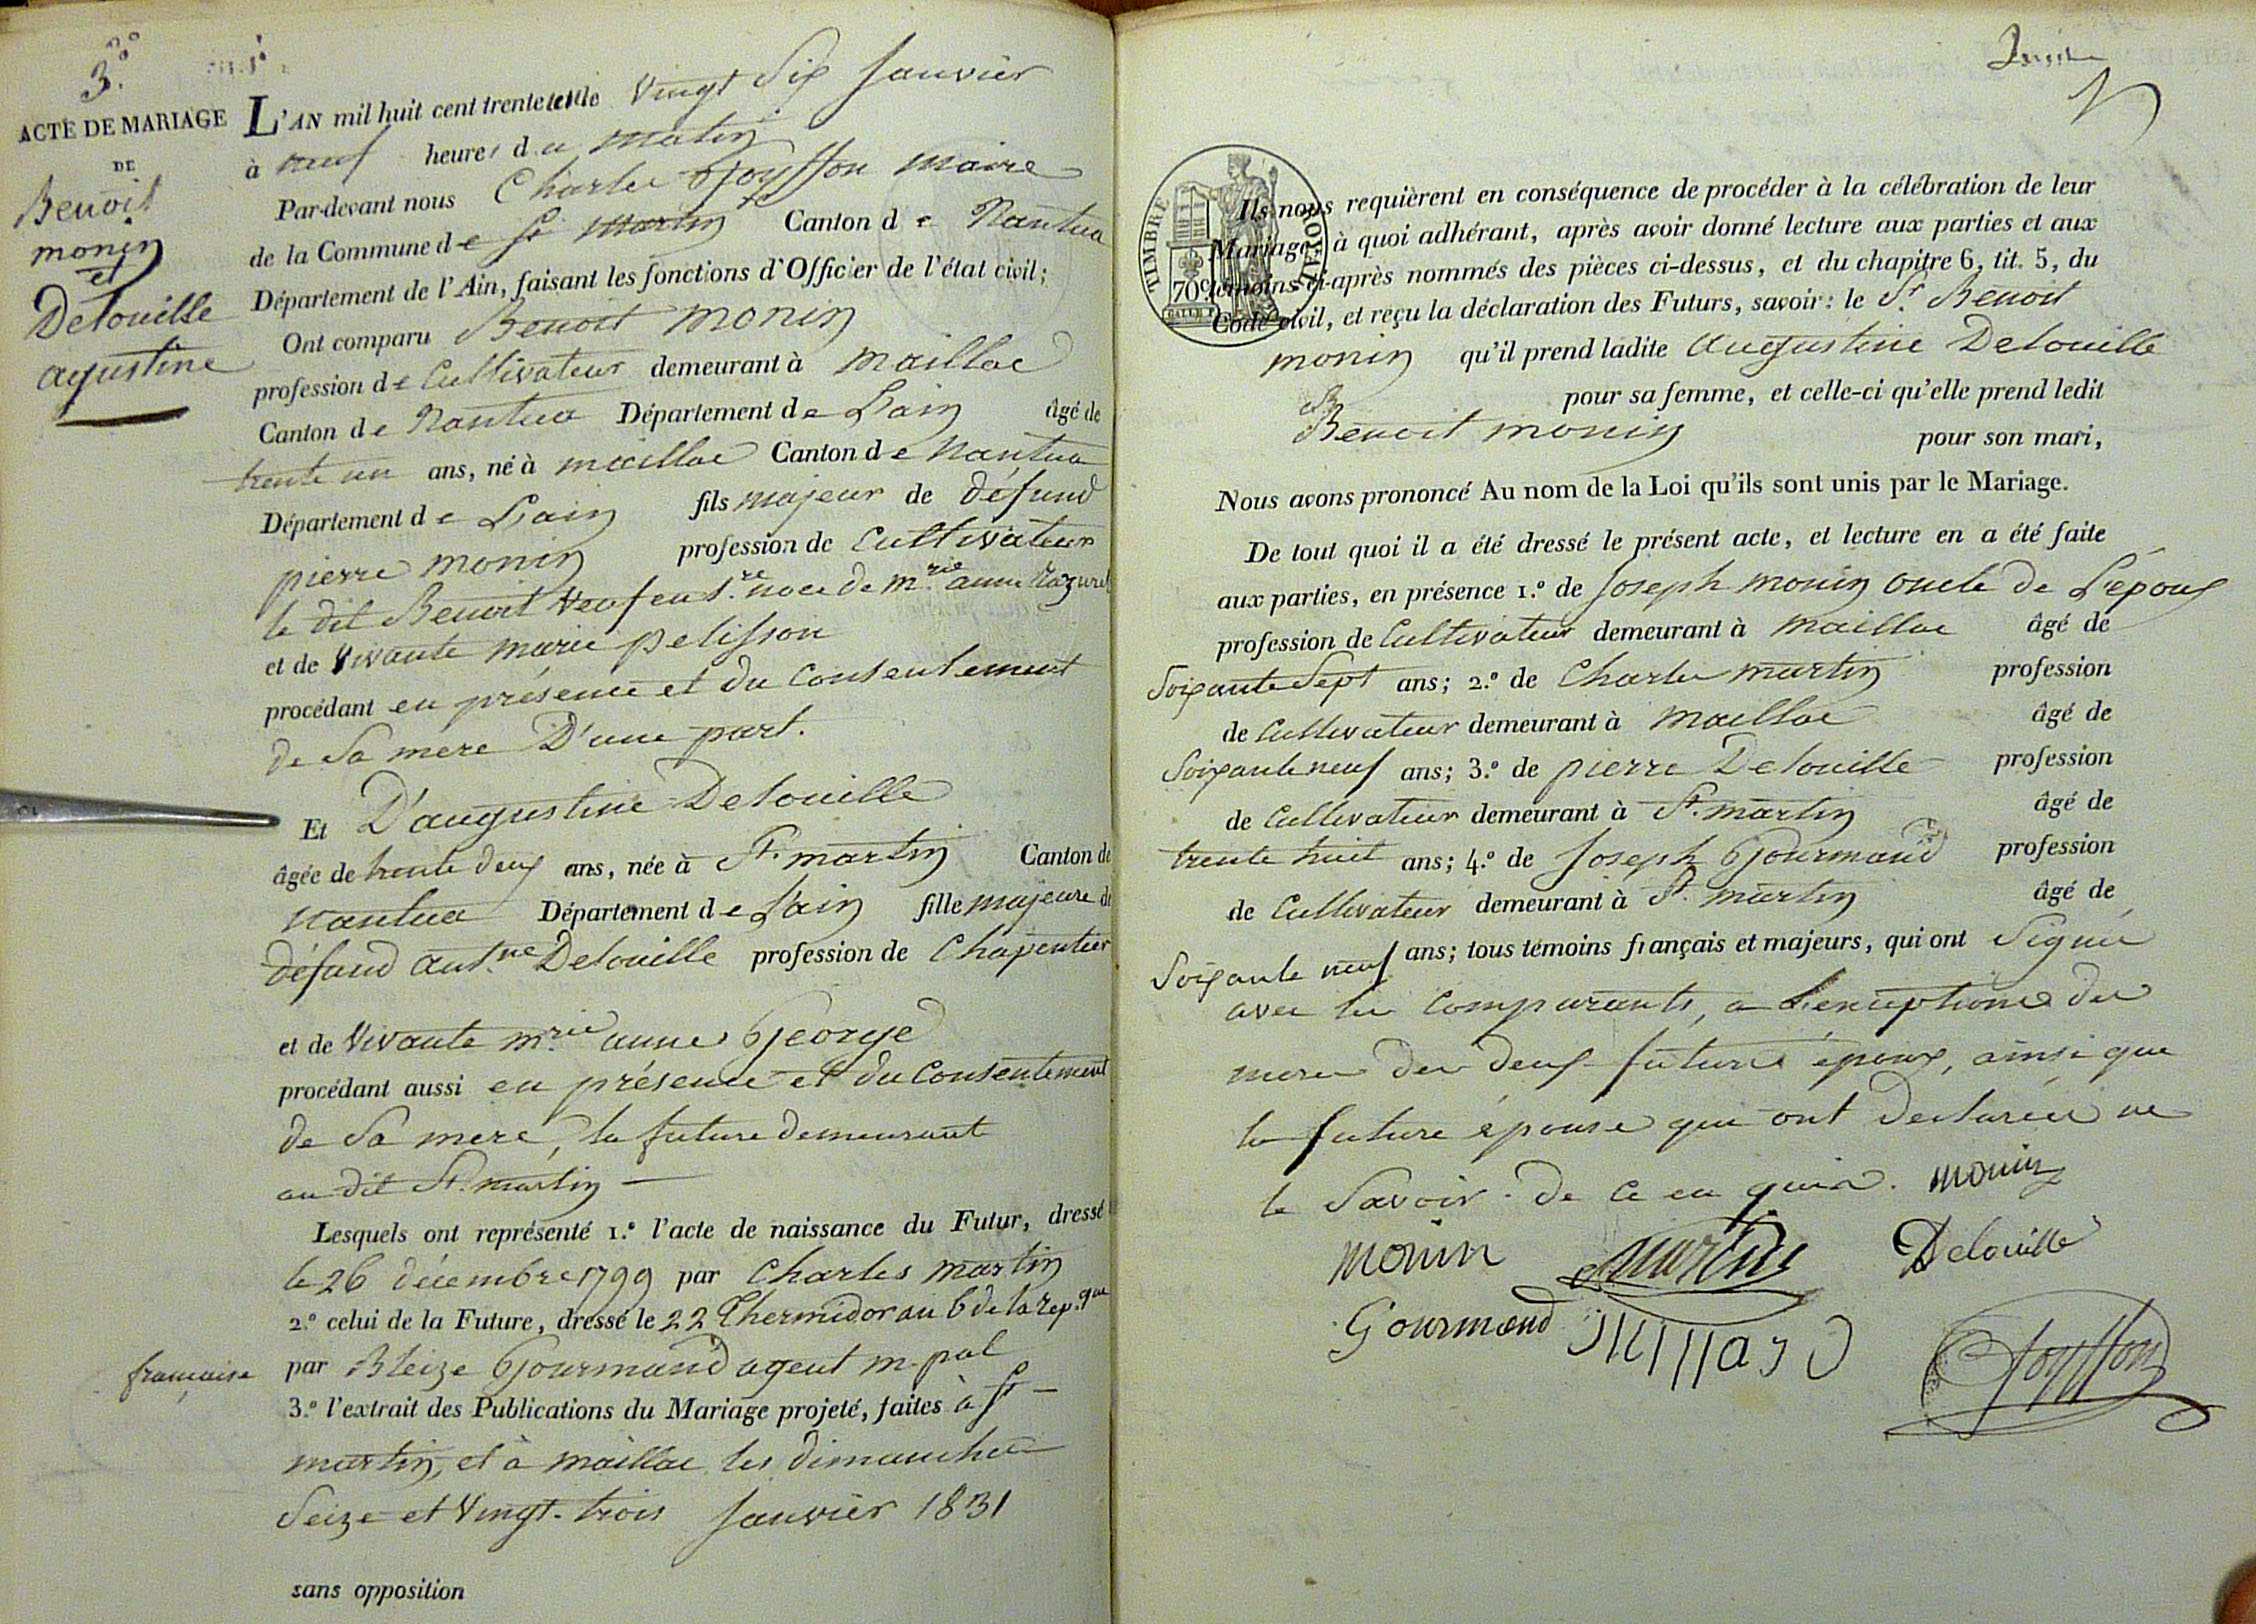 3.°
ACTE DE MARIAGE
DE
Benoit
monin
et
Delouille
agustine
L'AN mil huit cent trente et le Vingt Six Janvier
à neuf heures du matin
Par-devant nous Charle Goyffon maire
de la Commune de St martin Canton de Nantua
Département de l'Ain, faisant les fonctions d'Officier de l'état civil;
Ont comparu Benoit monin
profession de Cultivateur demeurant à maillac
Canton de Nantua Département de L'ain âgé de
trente un ans, né à maillac Canton de nantua
Département de L'ain fils majeur de défund
pierre monin profession de Cultivateur
le dit Benoit Veuf en 1.re noce de m.rie anne
et de Vivante marie pelisson
procédant en présence et du Consentement
de Sa mere D'une part.
Et D'augustine Delouille
âgée de trente deux ans, née à St. martin Canton de
nantua Département de L'ain fille majeure de
défund ant.ne Delouille profession de Chapentier
et de Vivante m.rie anne George
procédant aussi en présence et du Consentement
de Sa mere, la future demeurant
au dit St. martin —
Lesquels ont représenté 1.° l'acte de naissance du Futur, dressé
le 26 décembre 1799 par Charles martin
2.° celui de la Future, dressé le 22 Thermidor an 6 de la rep.que
française par Bleize Gourmand agent m-pal
3.° l'extrait des Publications du Mariage projeté, faites à St —
martin, et à maillac les dimanches
Seize et Vingt-trois Janvier 1831
sans opposition
TIMBRE ROYAL
70c
Ils nous requièrent en conséquence de procéder à la célébration de leur
Mariage, à quoi adhérant, après avoir donné lecture aux parties et aux
témoins ci-après nommés des pièces ci-dessus, et du chapitre 6, tit. 5, du
Code civil, et reçu la déclaration des Futurs, savoir: le Sr. Benoit
monin qu'il prend ladite augustine Delouille
pour sa femme, et celle-ci qu'elle prend ledit
Sr Benoit monin pour son mari,
Nous avons prononcé Au nom de la Loi qu'ils sont unis par le Mariage.
De tout quoi il a été dressé le présent acte, et lecture en a été faite
aux parties, en présence 1.° de Joseph monin oncle de L'epoux
profession de Cultivateur demeurant à maillac âgé de
Soixante Sept ans; 2.° de Charle martin profession
de Cultivateur demeurant à maillac âgé de
Soixante neuf ans; 3.° de pierre Delouille profession
de Cultivateur demeurant à St. martin âgé de
trente huit ans; 4.° de Joseph Gourmand profession
de Cultivateur demeurant à St. martin âgé de
Soixante neuf ans; tous témoins français et majeurs, qui ont Signé
avec les Comparants, a L'exceptions des
meres des deux futurs époux, ainsi que
la future épouse qui ont declarées ne
le Savoir. De ce en quis. monin
monin martin Delouille
Gourmand
Goyffon